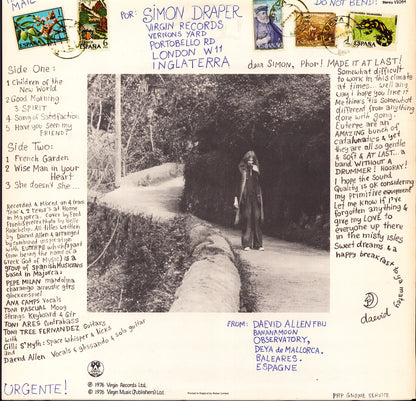 MAIL
POR: SIMON DRAPER
VIRGIN RECORDS
VERNONS YARD
PORTOBELLO RD
LONDON W11
INGLATERRA
DO NOT BEND!
Stereo V2054
ESPAÑA
ESPAÑA
ESPAÑA
ESPAÑA
dear Simon, Phor! MADE IT AT LAST!
Side One:
1 Children of the
New World
2 Good Morning
3 SPIRIT
4 Song of Satisfaction
5 Have you seen my
FRIEND?
Side Two:
1 French Garden
2 Wise Man in your
Heart
3 She doesn't She...
Recorded & Mixed on 4 track
TEAC & 2 revox's at Home
in Majorca. Cover by Fred
Frumpberger Nights by Belle
Rowbells. All titles written
by Daevid Allen & arranged
by combined inspiration
with EUTERPE which apart
from being the name of a
Greek God of Music) is a
group of Spanish Musicians
based in Majorca:
PEPE MILAN mandolina
charango acoustic gtrs
glockenspiel
ANA CAMPS Vocals
TONI PASCUAL Moog
Strings Keyboard & Gtr
TONI ARES Contrabass
TONI TREE FERNANDEZ Guitars
with
Gilli Smyth: Space whisper & licks
and
Daevid Allen: Vocals & glissando & solo guitar
URGENTE!
Somewhat difficult
to work in this climate
at times... well any
way I hope you like it
Me thinks 'tis somewhat
different from anything
done with gong.
Euterpe are an
AMAZING bunch of
catalunatics & yet
they are all so gentle
& soft & AT LAST... a
band WITHOUT A
DRUMMER! HOORAY!
I hope the sound
Quality is OK considering
my primitive equipment
Let me know if I've
forgotten anything &
give my LOVE to
everyone up there
in the misty isles
Sweet dreams & a
happy breakfast to ya matey
daevid
FROM: DAEVID ALLEN FBU
BANANAMOON
OBSERVATORY,
DEYA de MALLORCA.
BALEARES.
ESPAGNE
℗ 1976 Virgin Records Ltd.
© 1976 Virgin Music (Publishers) Ltd.
PHP GNOME SERVICE